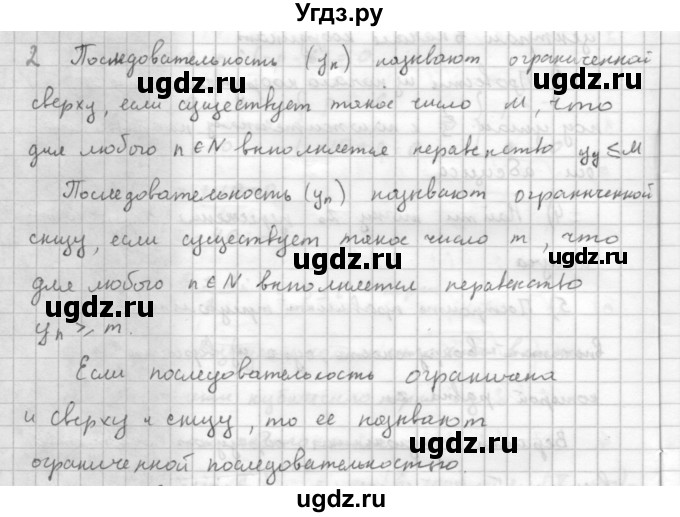 Угдз.ру
2 Последовательность (yₙ) называют ограниченной
сверху, если существует такое число M, что
для любого n ∈ N выполняется неравенство y_y ≤ M
Последовательность (yₙ) называют ограниченной
снизу, если существует такое число m, что
для любого n ∈ N выполняется неравенство
yₙ ≥ m.
Если последовательность ограничена
и сверху и снизу, то ее называют
ограниченной последовательностью.
ugdz.ru
ugdz.ru
ugdz.ru
ugdz.ru
ugdz.ru
ugdz.ru
ugdz.ru
ugdz.ru